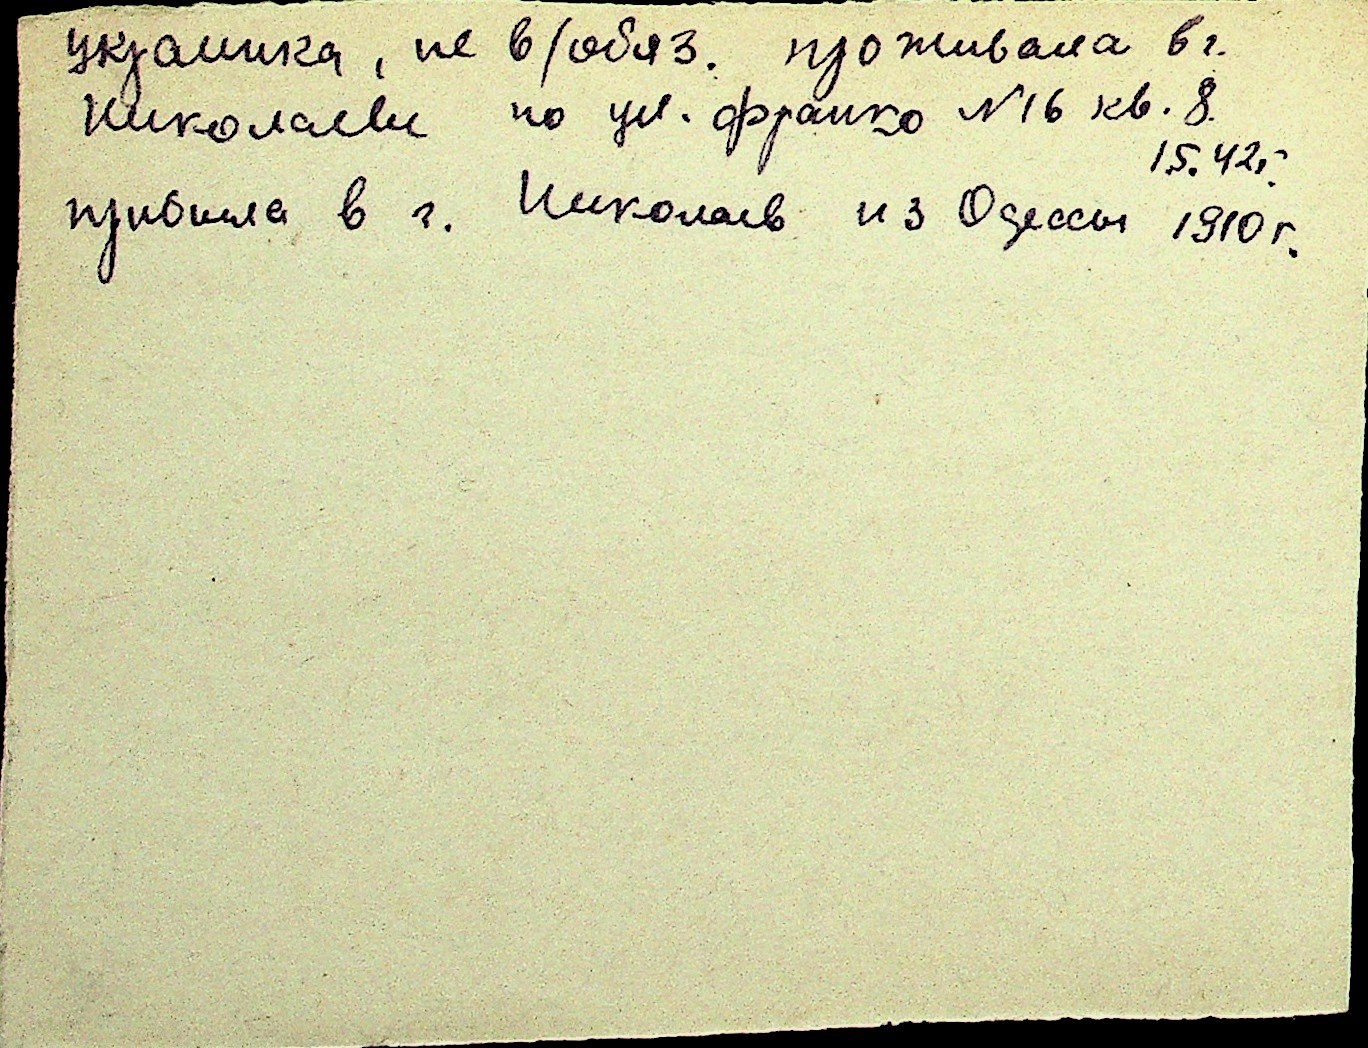 украинка, не в/обяз. проживала в г.
Николаеве по ул. Франко №16 кв. 8.
15.42г.
прибыла в г. Николаев из Одессы 1910 г.